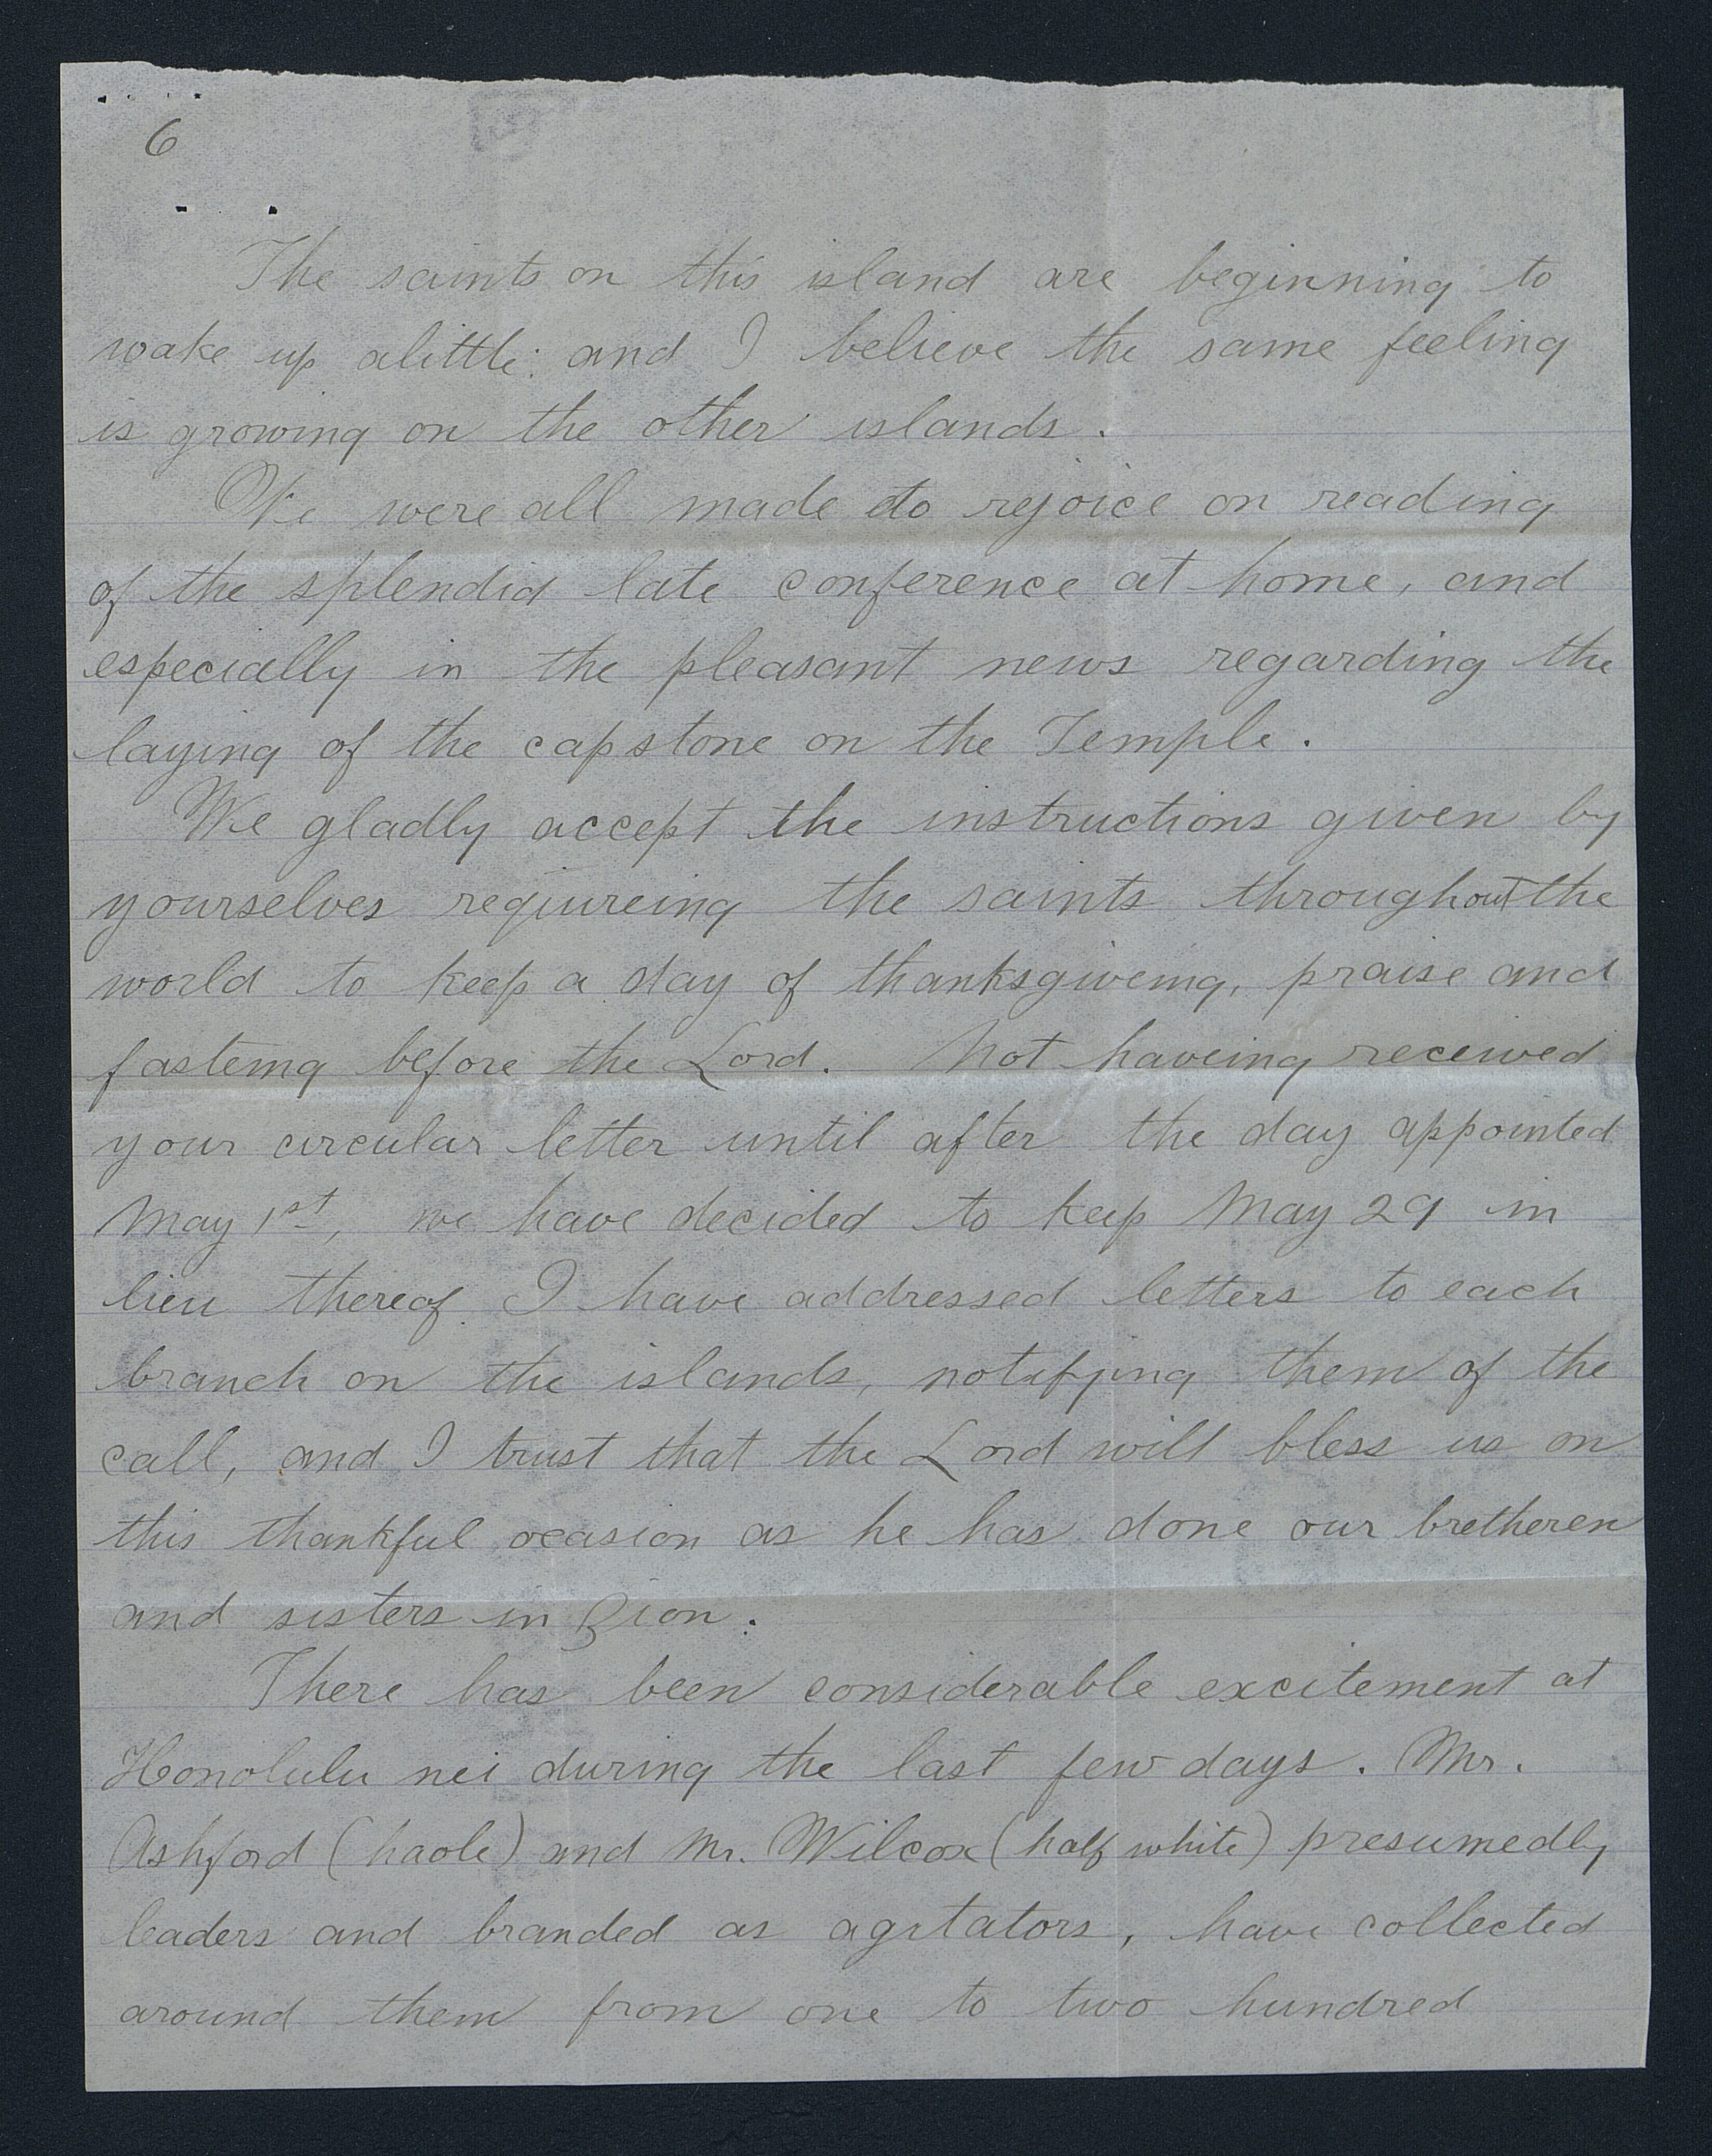 6
The saints on this island are beginning to
wake up alittle: and I believe the same feeling
is growing on the other islands.
We were all made to rejoice on reading
of the splendid late conference at home, and
especially in the pleasant news regarding the
laying of the capstone on the Temple.
We gladly accept the instructions given by
yourselves requireing the saints throughout the
world to keep a day of thanksgiveing, praise and
fasteing before the Lord. Not haveing received
your circular letter until after the day appointed
May 1st, we have decided to keep May 29 in
lieu thereof. I have addressed letters to each
branch on the islands, notifying them of the
call, and I trust that the Lord will bless us on
this thankful ocasion as he has done our bretheren
and sisters in Zion.
There has been considerable excitement at
Honolulu nei during the last few days. Mr.
Ashford (haole) and Mr. Wilcox (half white) presumedly
leaders and branded as agitators, have collected
around them from one to two hundred